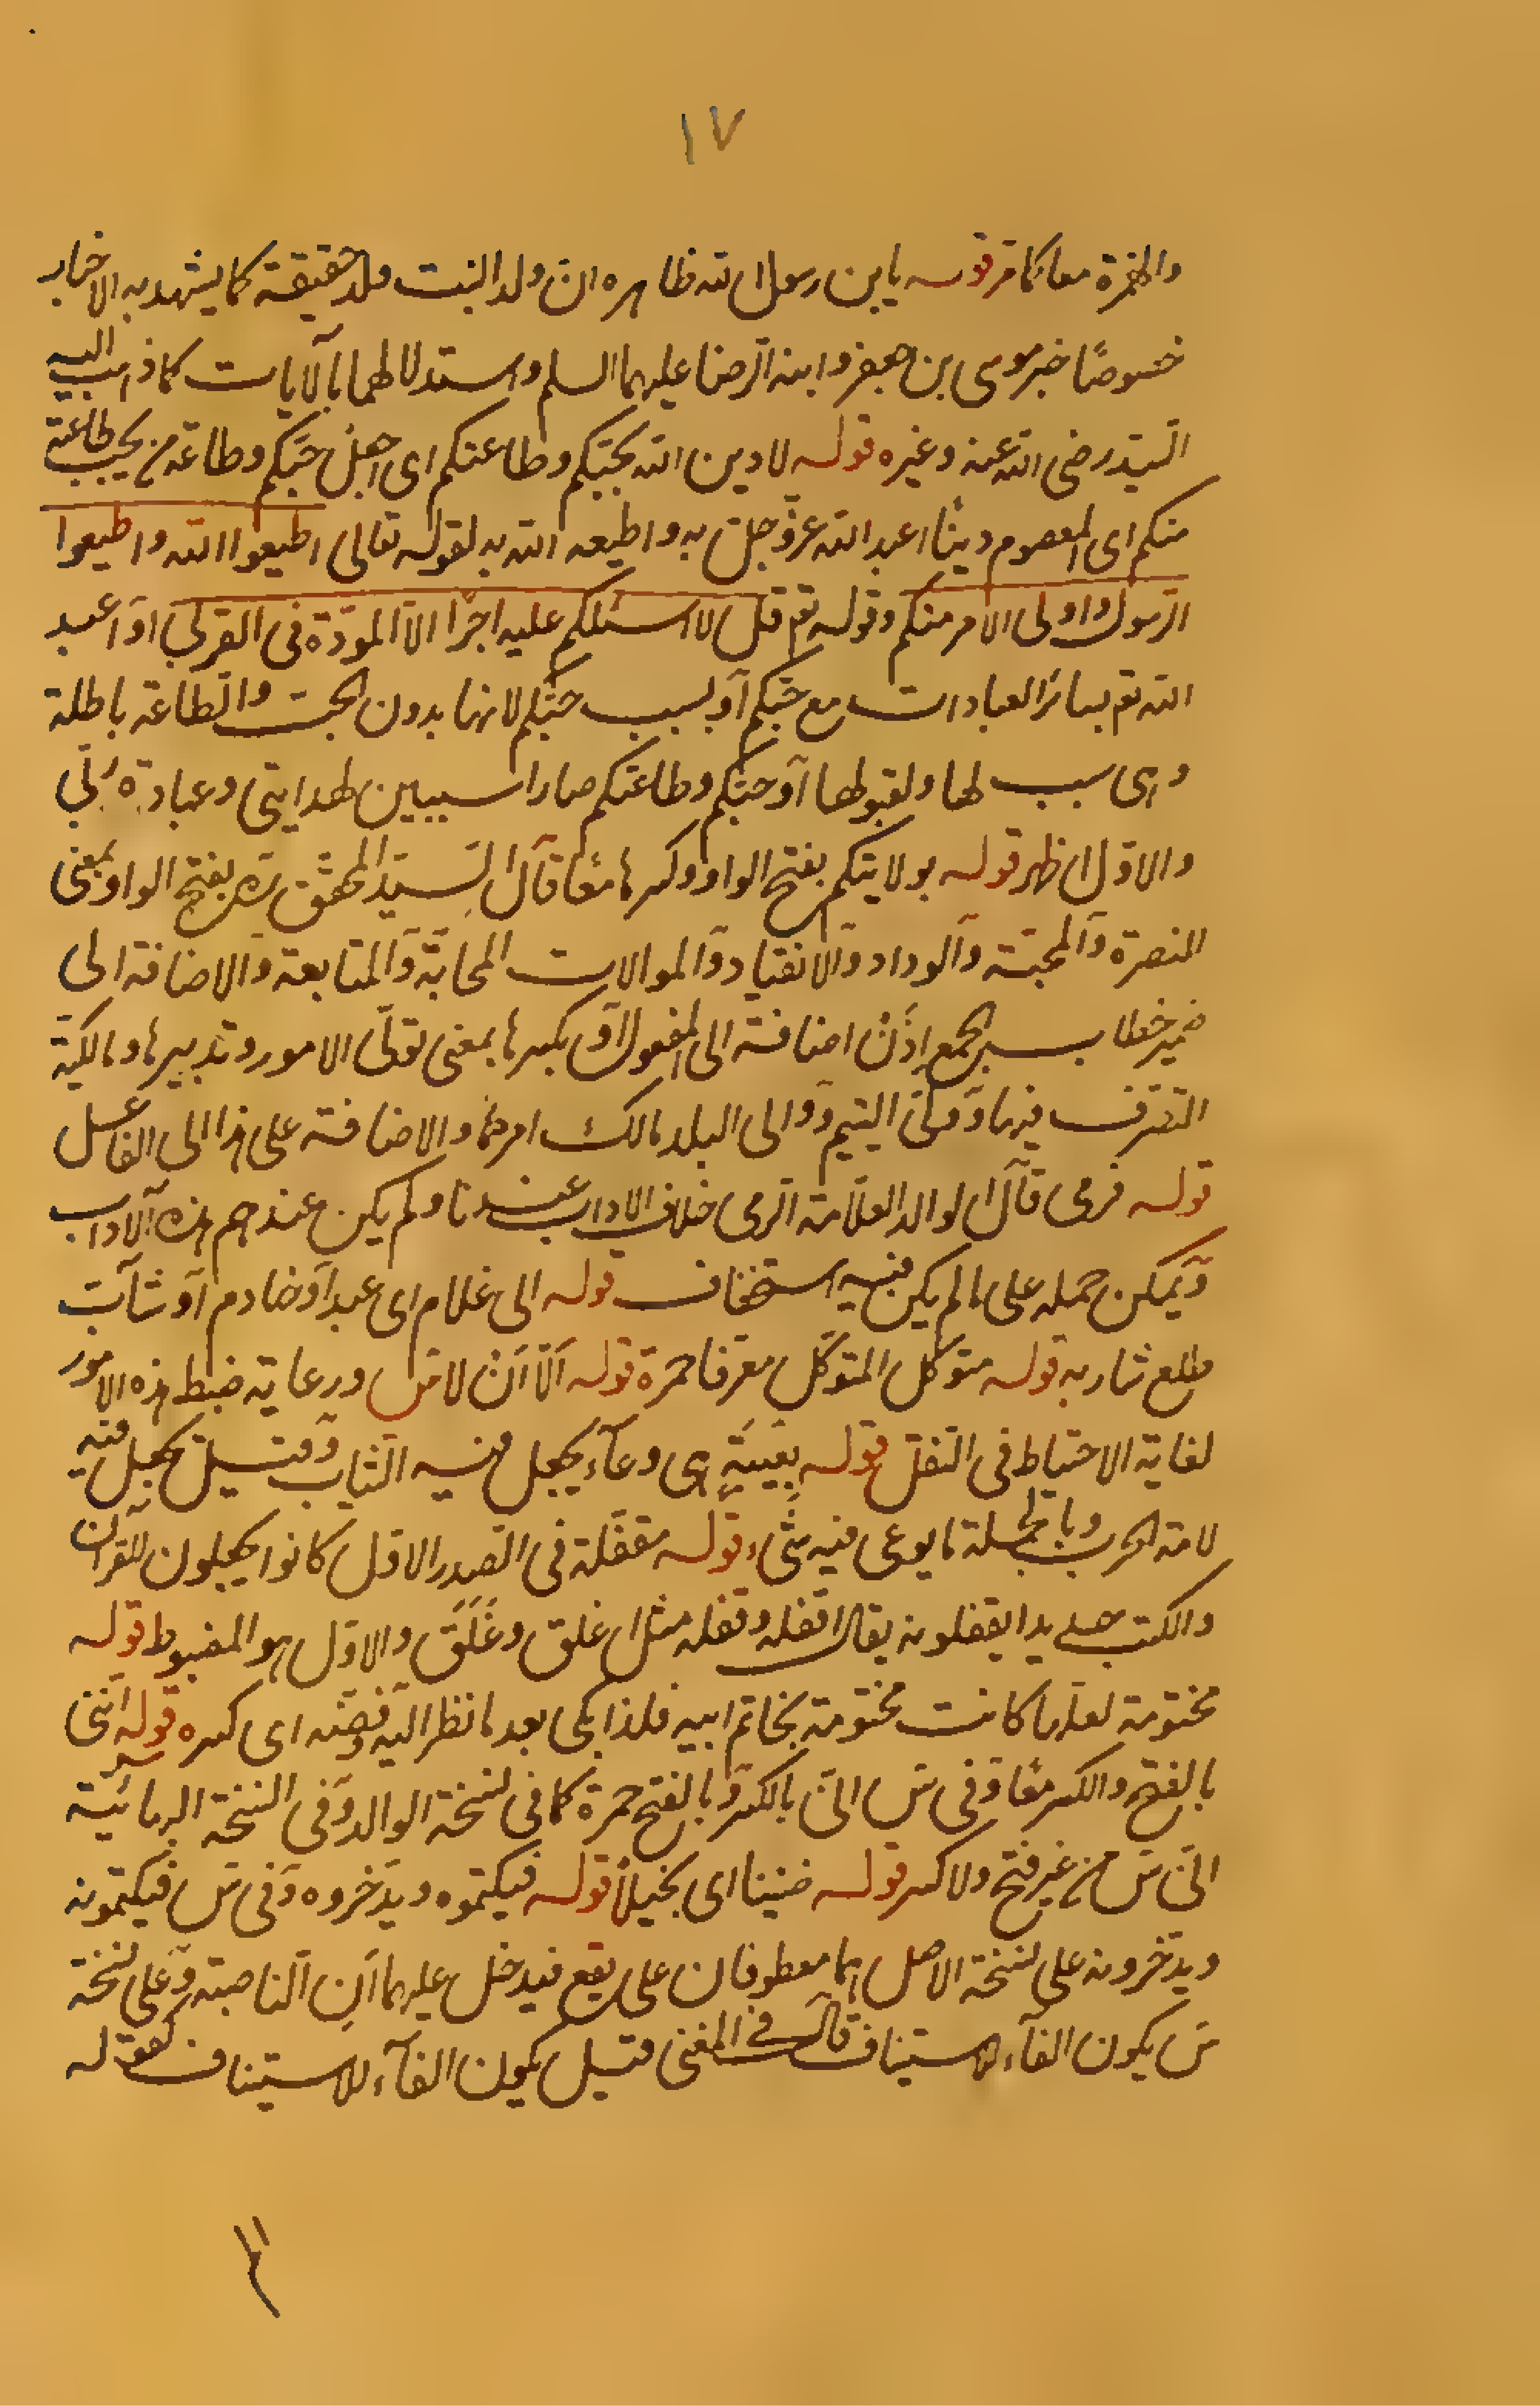 ١٧
والخمرة معا كما مر قوله يابن رسول الله ظاهره ان ولد البنت ولد حقيقة كما يشهد به الاخبار
خصوصًا خبر موسى بن جعفر وابنه الرضا عليهما السلم واستدلالهما بالآيات كما ذهب اليه
السيد رضى الله عنه وغيره قوله لادين الله بحبكم وطاعتكم اى اجعل حبكم وطاعة من يجب طاعته
منكم اى المعصوم دينًا اعبد الله عز وجل به واطيعه الله به لقوله تعالى اطيعوا الله واطيعوا
الرسول واولى الامر منكم وقوله تع قل لا اسئلكم عليه اجرًا الا المودة فى القربى او اعبد
الله تع بسائر العبادات مع حبكم او بسبب حبكم لانها بدون الحب والطاعة باطلة
وهى سبب لها ولقبولها او حبكم وطاعتكم صارا سببين لهدايتى وعبادة ربى
والاول اظهر قوله بولايتكم بفتح الواو وكسرها معًا قال السيد المحقق ره بفتح الواو بمعنى
النصرة والمحبة والوداد والانقياد والموالات المحابة والمتابعة والاضافة الى
ضمير خطاب الجمع اذن اضافة الى المفعول او بكسرها بمعنى تولى الامور وتدبيرها ومالكية
التصرف فيها وولى اليتيم ووالى البلد مالك امرهما والاضافة على هذا الى الفاعل
قوله فرمى قال الوالد العلامة الرمى خلاف الاداب عندنا ولم يكن عندهم هذه الآداب
ويمكن حمله على ما لم يكن فيه استخفاف قوله الى غلام اى عبد او خادم او شاب
طلع شاربه قوله متوكل المتوكل معرفا حمرة قوله الا ان لا س ورعاية ضبط هذه الامور
لغاية الاحتياط فى النقل قوله بعيبة هى وعآء يجعل فيه الثياب وقيل يجعل فيه
لامة الحرب وبالجملة ما يوعى فيه شىء قوله مقفلة فى الصدر الاول كانوا يجعلون للقرآن
والكتب حديدا يقفلونه يقال اقفله وقفله مثل اغلق وغلق والاول هو المضبوط قوله
مختومة لعلها كانت مختومة بخاتم ابيه فلذا بكى بعد ما نظر اليه وفضه اى كسره قوله اننى
بالفتح والكسر معًا وفى س انى بالكسر وبالفتح حمرة كما فى نسخة الوالد وفى النسخة البهائية
انى س من غير فتح ولا كسر قوله ضنينا اى بخيلًا قوله فيكتموه ويدخروه وفى س فيكتمونه
ويدخرونه على نسخة الاصل هما معطوفان على يقع فيدخل عليهما ان الناصبة وعلى نسخة
س يكون الفآء للاستيناف قال فى المغنى قيل يكون الفآء للاستيناف كقوله